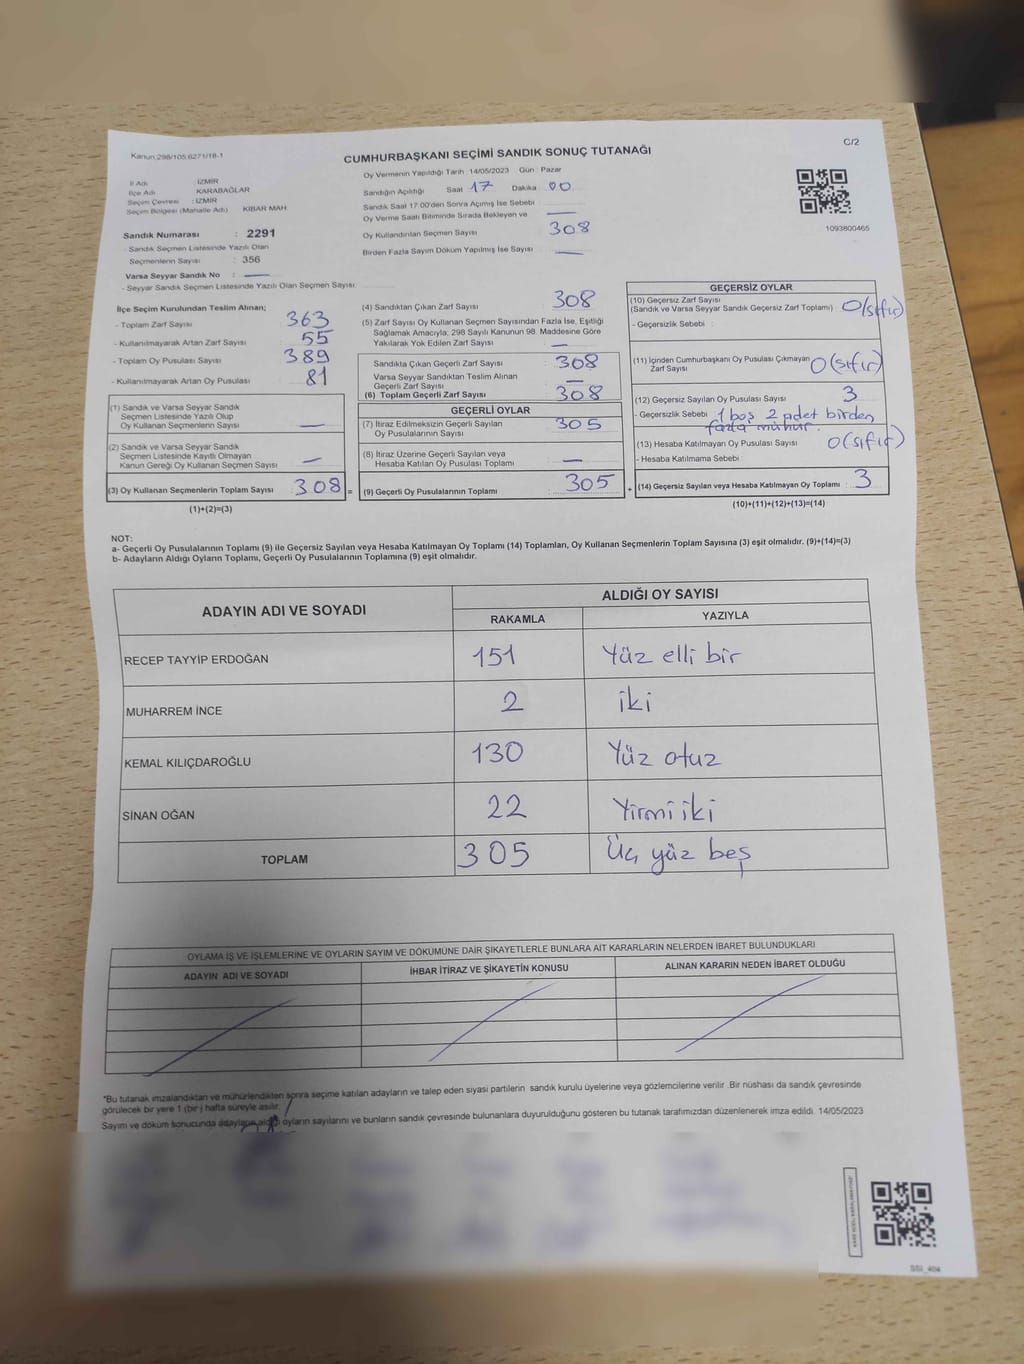 Kanun.298/105.6271/18-1
C/2
CUMHURBAŞKANI SEÇİMİ SANDIK SONUÇ TUTANAĞI
İl Adı : İZMİR
İlçe Adı : KARABAĞLAR
Seçim Çevresi : İZMİR
Seçim Bölgesi (Mahalle Adı) : KİBAR MAH.
Sandık Numarası : 2291
- Sandık Seçmen Listesinde Yazılı Olan
Seçmenlerin Sayısı : 356
Varsa Seyyar Sandık No : —
- Seyyar Sandık Seçmen Listesinde Yazılı Olan Seçmen Sayısı:
Oy Vermenin Yapıldığı Tarih : 14/05/2023 Gün : Pazar
Sandığın Açıldığı Saat 17 Dakika 00
Sandık Saat 17:00'den Sonra Açılmış İse Sebebi
Oy Verme Saati Bitiminde Sırada Bekleyen ve —
Oy Kullandırılan Seçmen Sayısı 308
Birden Fazla Sayım Döküm Yapılmış İse Sayısı —
1093800465
İlçe Seçim Kurulundan Teslim Alınan;
- Toplam Zarf Sayısı : 363
- Kullanılmayarak Artan Zarf Sayısı : 55
- Toplam Oy Pusulası Sayısı : 389
- Kullanılmayarak Artan Oy Pusulası : 81
(1) Sandık ve Varsa Seyyar Sandık
Seçmen Listesinde Yazılı Olup
Oy Kullanan Seçmenlerin Sayısı : —
(2) Sandık ve Varsa Seyyar Sandık
Seçmen Listesinde Kayıtlı Olmayan
Kanun Gereği Oy Kullanan Seçmen Sayısı : —
(3) Oy Kullanan Seçmenlerin Toplam Sayısı : 308 =
(1)+(2)=(3)
(4) Sandıktan Çıkan Zarf Sayısı : 308
(5) Zarf Sayısı Oy Kullanan Seçmen Sayısından Fazla İse, Eşitliği
Sağlamak Amacıyla; 298 Sayılı Kanunun 98. Maddesine Göre
Yakılarak Yok Edilen Zarf Sayısı : —
Sandıkta Çıkan Geçerli Zarf Sayısı : 308
Varsa Seyyar Sandıktan Teslim Alınan
Geçerli Zarf Sayısı : —
(6) Toplam Geçerli Zarf Sayısı : 308
GEÇERLİ OYLAR
(7) İtiraz Edilmeksizin Geçerli Sayılan
Oy Pusulalarının Sayısı : 305
(8) İtiraz Üzerine Geçerli Sayılan veya
Hesaba Katılan Oy Pusulası Toplamı : —
(9) Geçerli Oy Pusulalarının Toplamı : 305 +
GEÇERSİZ OYLAR
(10) Geçersiz Zarf Sayısı
(Sandık ve Varsa Seyyar Sandık Geçersiz Zarf Toplamı) : 0(sıfır)
- Geçersizlik Sebebi :
(11) İçinden Cumhurbaşkanı Oy Pusulası Çıkmayan
Zarf Sayısı : 0(sıfır)
(12) Geçersiz Sayılan Oy Pusulası Sayısı : 3
- Geçersizlik Sebebi : 1 boş 2 adet birden
fazla mühür.
(13) Hesaba Katılmayan Oy Pusulası Sayısı : 0(sıfır)
- Hesaba Katılmama Sebebi :
(14) Geçersiz Sayılan veya Hesaba Katılmayan Oy Toplamı : 3
(10)+(11)+(12)+(13)=(14)
NOT:
a- Geçerli Oy Pusulalarının Toplamı (9) ile Geçersiz Sayılan veya Hesaba Katılmayan Oy Toplamı (14) Toplamları, Oy Kullanan Seçmenlerin Toplam Sayısına (3) eşit olmalıdır. (9)+(14)=(3)
b- Adayların Aldığı Oyların Toplamı, Geçerli Oy Pusulalarının Toplamına (9) eşit olmalıdır.
ADAYIN ADI VE SOYADI
ALDIĞI OY SAYISI
RAKAMLA YAZIYLA
RECEP TAYYİP ERDOĞAN 151 Yüz elli bir
MUHARREM İNCE 2 iki
KEMAL KILIÇDAROĞLU 130 Yüz otuz
SİNAN OĞAN 22 Yirmi iki
TOPLAM 305 Üç yüz beş
OYLAMA İŞ VE İŞLEMLERİNE VE OYLARIN SAYIM VE DÖKÜMÜNE DAİR ŞİKAYETLERLE BUNLARA AİT KARARLARIN NELERDEN İBARET BULUNDUKLARI
ADAYIN ADI VE SOYADI İHBAR İTİRAZ VE ŞİKAYETİN KONUSU ALINAN KARARIN NEDEN İBARET OLDUĞU
*Bu tutanak imzalandıktan ve mühürlendikten sonra seçime katılan adayların ve talep eden siyasi partilerin sandık kurulu üyelerine veya gözlemcilerine verilir .Bir nüshası da sandık çevresinde
görülecek bir yere 1 (bir) hafta süreyle asılır.
Sayım ve döküm sonucunda adayların aldığı oyların sayılarını ve bunların sandık çevresinde bulunanlara duyurulduğunu gösteren bu tutanak tarafımızdan düzenlenerek imza edildi. 14/05/2023
SSI_404